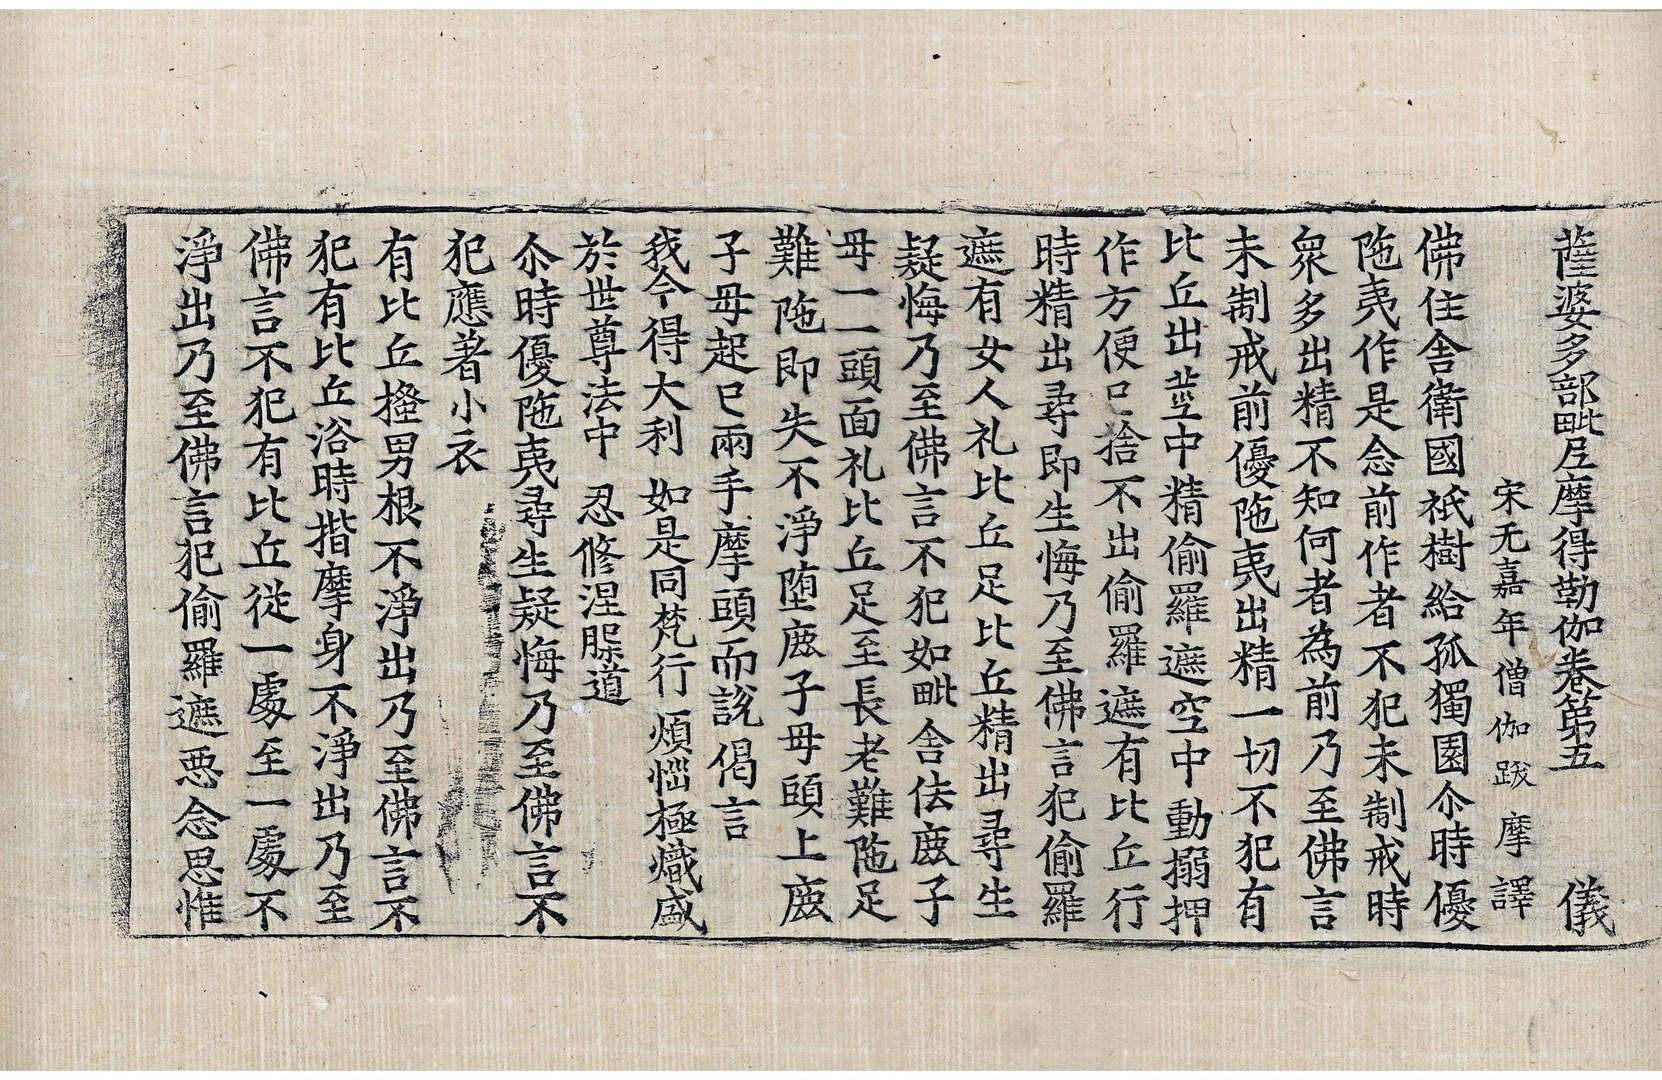 薩婆多部毗尼摩得勒伽卷第五　儀
宋元嘉年僧伽跋摩譯
佛住舍衛國祇樹給孤獨園尒時優
陁夷作是念前作者不犯未制戒時
衆多出精不知何者為前乃至佛言
未制戒前優陁夷出精一切不犯有
比丘出𦿆中精偷羅遮空中動搦押
作方便已捨不出偷羅遮有比丘行
時精出尋即生悔乃至佛言犯偷羅
遮有女人礼比丘足比丘精出尋生
疑悔乃至佛言不犯如毗舍佉鹿子
母一一頭面礼比丘足至長老難陁足
難陁即失不淨堕鹿子母頭上鹿
子母起已兩手摩頭而說偈言
我今得大利　如是同梵行　煩惱極熾盛
於世尊法中　忍修涅槃道
尒時優陁夷尋生疑悔乃至佛言不
犯應著小衣
有比丘搔男根不淨出乃至佛言不
犯有比丘浴時揩摩身不淨出乃至
佛言不犯有比丘從一處至一處不
淨出乃至佛言犯偷羅遮惡念思惟